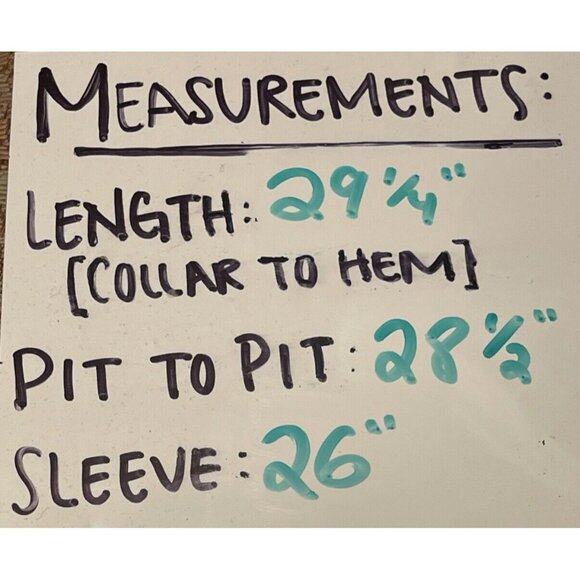 MEASUREMENTS:
LENGTH: 29 1/4"
[COLLAR TO HEM]
PIT TO PIT: 28 1/2"
SLEEVE: 26"